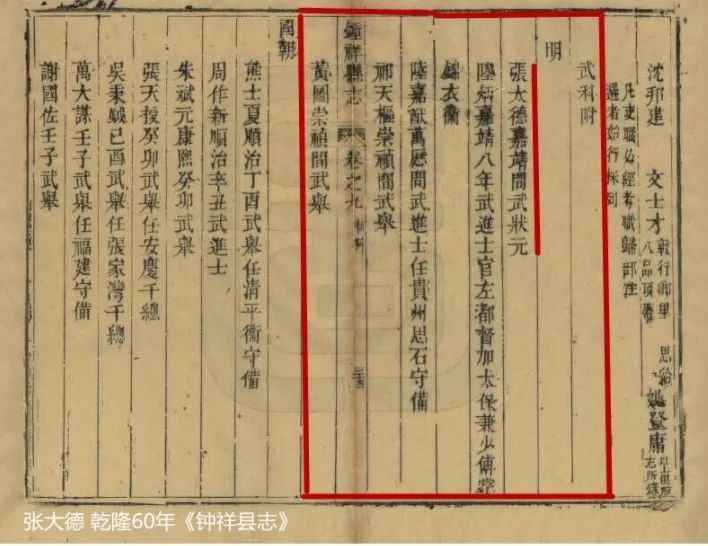 沈邦建
文士才
敦行鄉里
八品頂帶
恩給
姚登庸
以上俱原
志所錄
凡吏職必經考職歸部注
選者始行採列
武科附
明
張大德嘉靖間武狀元
陸炳嘉靖八年武進士官左都督加太保兼少傅掌
錦衣衛
陸嘉猷萬歷間武進士任貴州思石守備
祁天樞崇禎間武舉
鍾祥縣志
卷之九
黃圖崇禎間武舉
國朝
熊士夏順治丁酉武舉任清平衛守備
周作新順治辛丑武進士
朱斌元康熙癸卯武舉
張天授癸卯武舉任安慶千總
吳秉鉞己酉武舉任張家灣千總
萬大謀壬子武舉任福建守備
謝國佐壬子武舉
张大德 乾隆60年《钟祥县志》